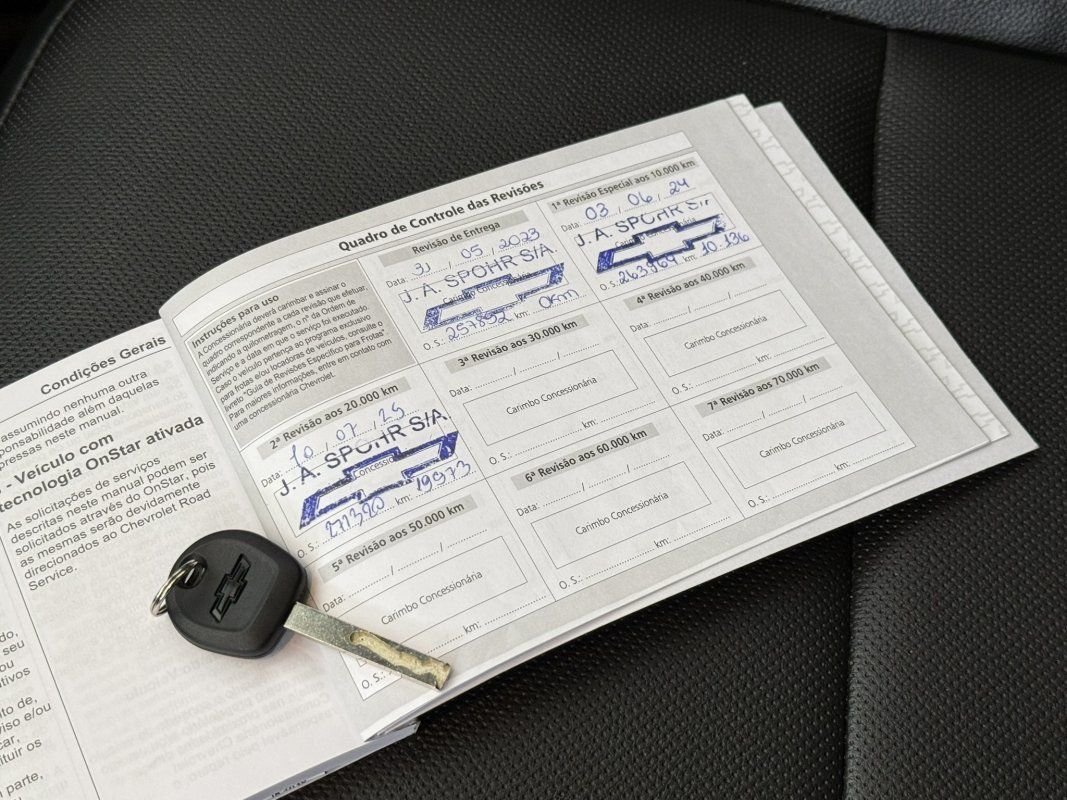 Condições Gerais
assumindo nenhuma outra
ponsabilidade além daquelas
pressas neste manual.
- Veículo com
tecnologia OnStar ativada
As solicitações de serviços
descritas neste manual podem ser
solicitados através do OnStar, pois
as mesmas serão devidamente
direcionados ao Chevrolet Road
Service.
do,
seu
ou
tivos
to de,
viso e/ou
car,
tituir os
parte,
Quadro de Controle das Revisões
Instruções para uso
A Concessionária deverá carimbar e assinar o
quadro correspondente a cada revisão que efetuar,
indicando a quilometragem, o nº da Ordem de
Serviço e a data em que o serviço foi executado.
Caso o veículo pertença ao programa exclusivo
para frotas e/ou locadoras de veículos, consulte o
livreto "Guia de Revisões Específico para Frotas".
Para maiores informações, entre em contato com
uma concessionária Chevrolet.
Revisão de Entrega
Data: 31 / 05 / 2023
J. A. SPOHR S/A.
O. S.: 257892 0km
1ª Revisão Especial aos 10.000 km
Data: 03 / 06 / 24
J. A. SPOHR S/
O. S.: 263969 km: 10.136
2ª Revisão aos 20.000 km
Data: 10 / 07 / 25
J. A. SPOHR S/A.
O. S.: 271320 km: 19973
3ª Revisão aos 30.000 km
Data: / /
Carimbo Concessionária
O. S.: km:
4ª Revisão aos 40.000 km
Data: / /
Carimbo Concessionária
O. S.: km:
5ª Revisão aos 50.000 km
Data: / /
Carimbo Concessionária
O. S.: km:
6ª Revisão aos 60.000 km
Data: / /
Carimbo Concessionária
O. S.: km:
7ª Revisão aos 70.000 km
Data: / /
Carimbo Concessionária
O. S.: km: